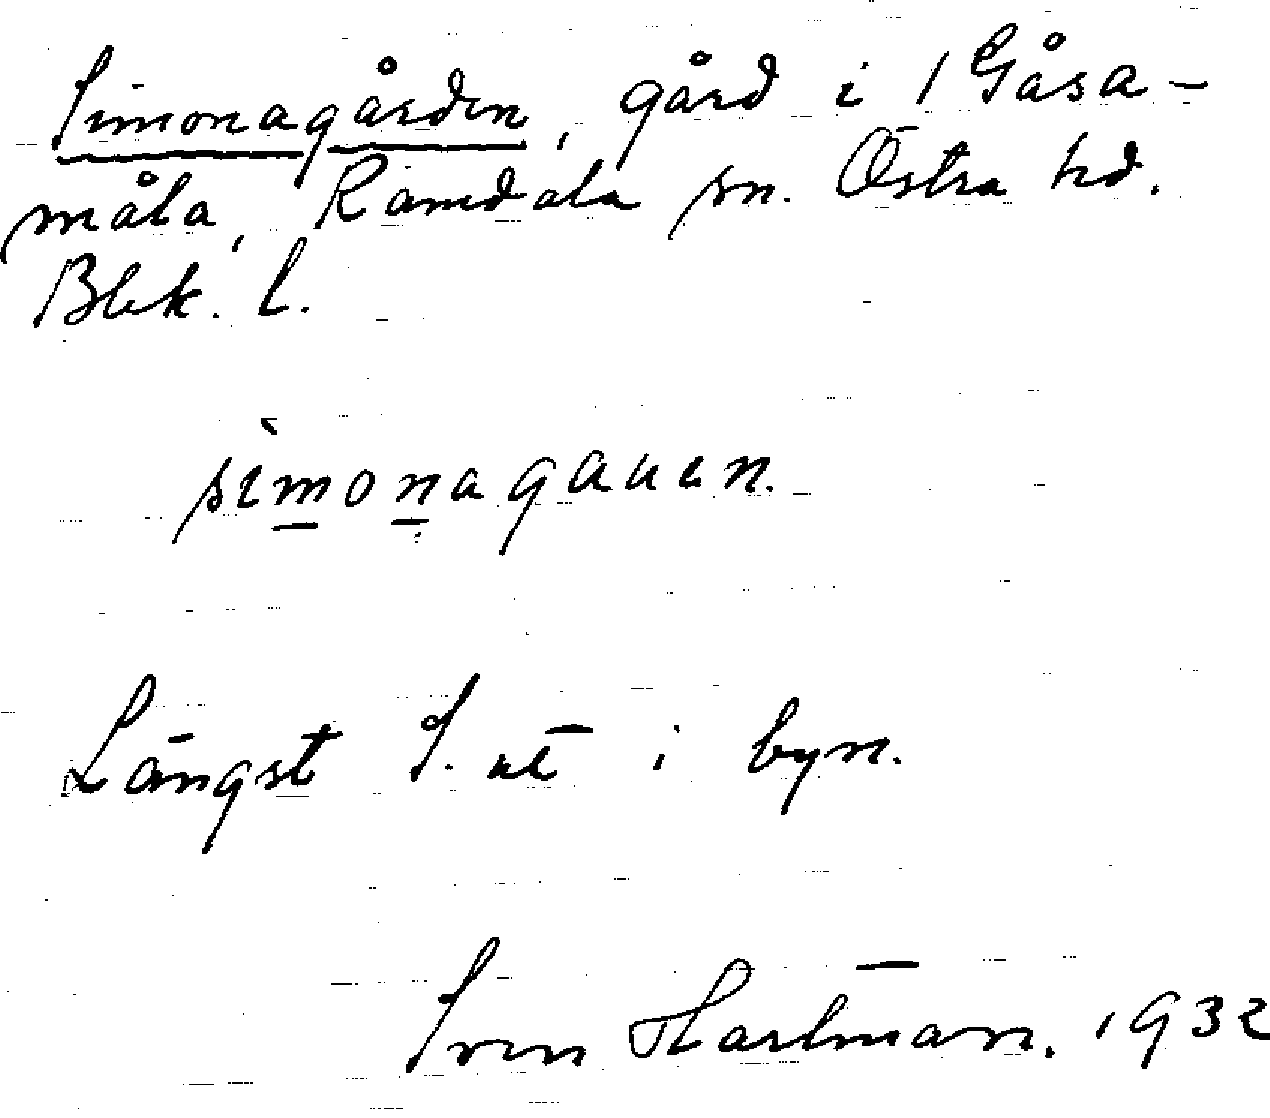 Simonagården, gård i 1 Gåsa-
måla, Ramdala sn. Östra hd.
Blek. l.
sìmonagauen.
Längst S. ut i byn.
Sven Hartman. 1932